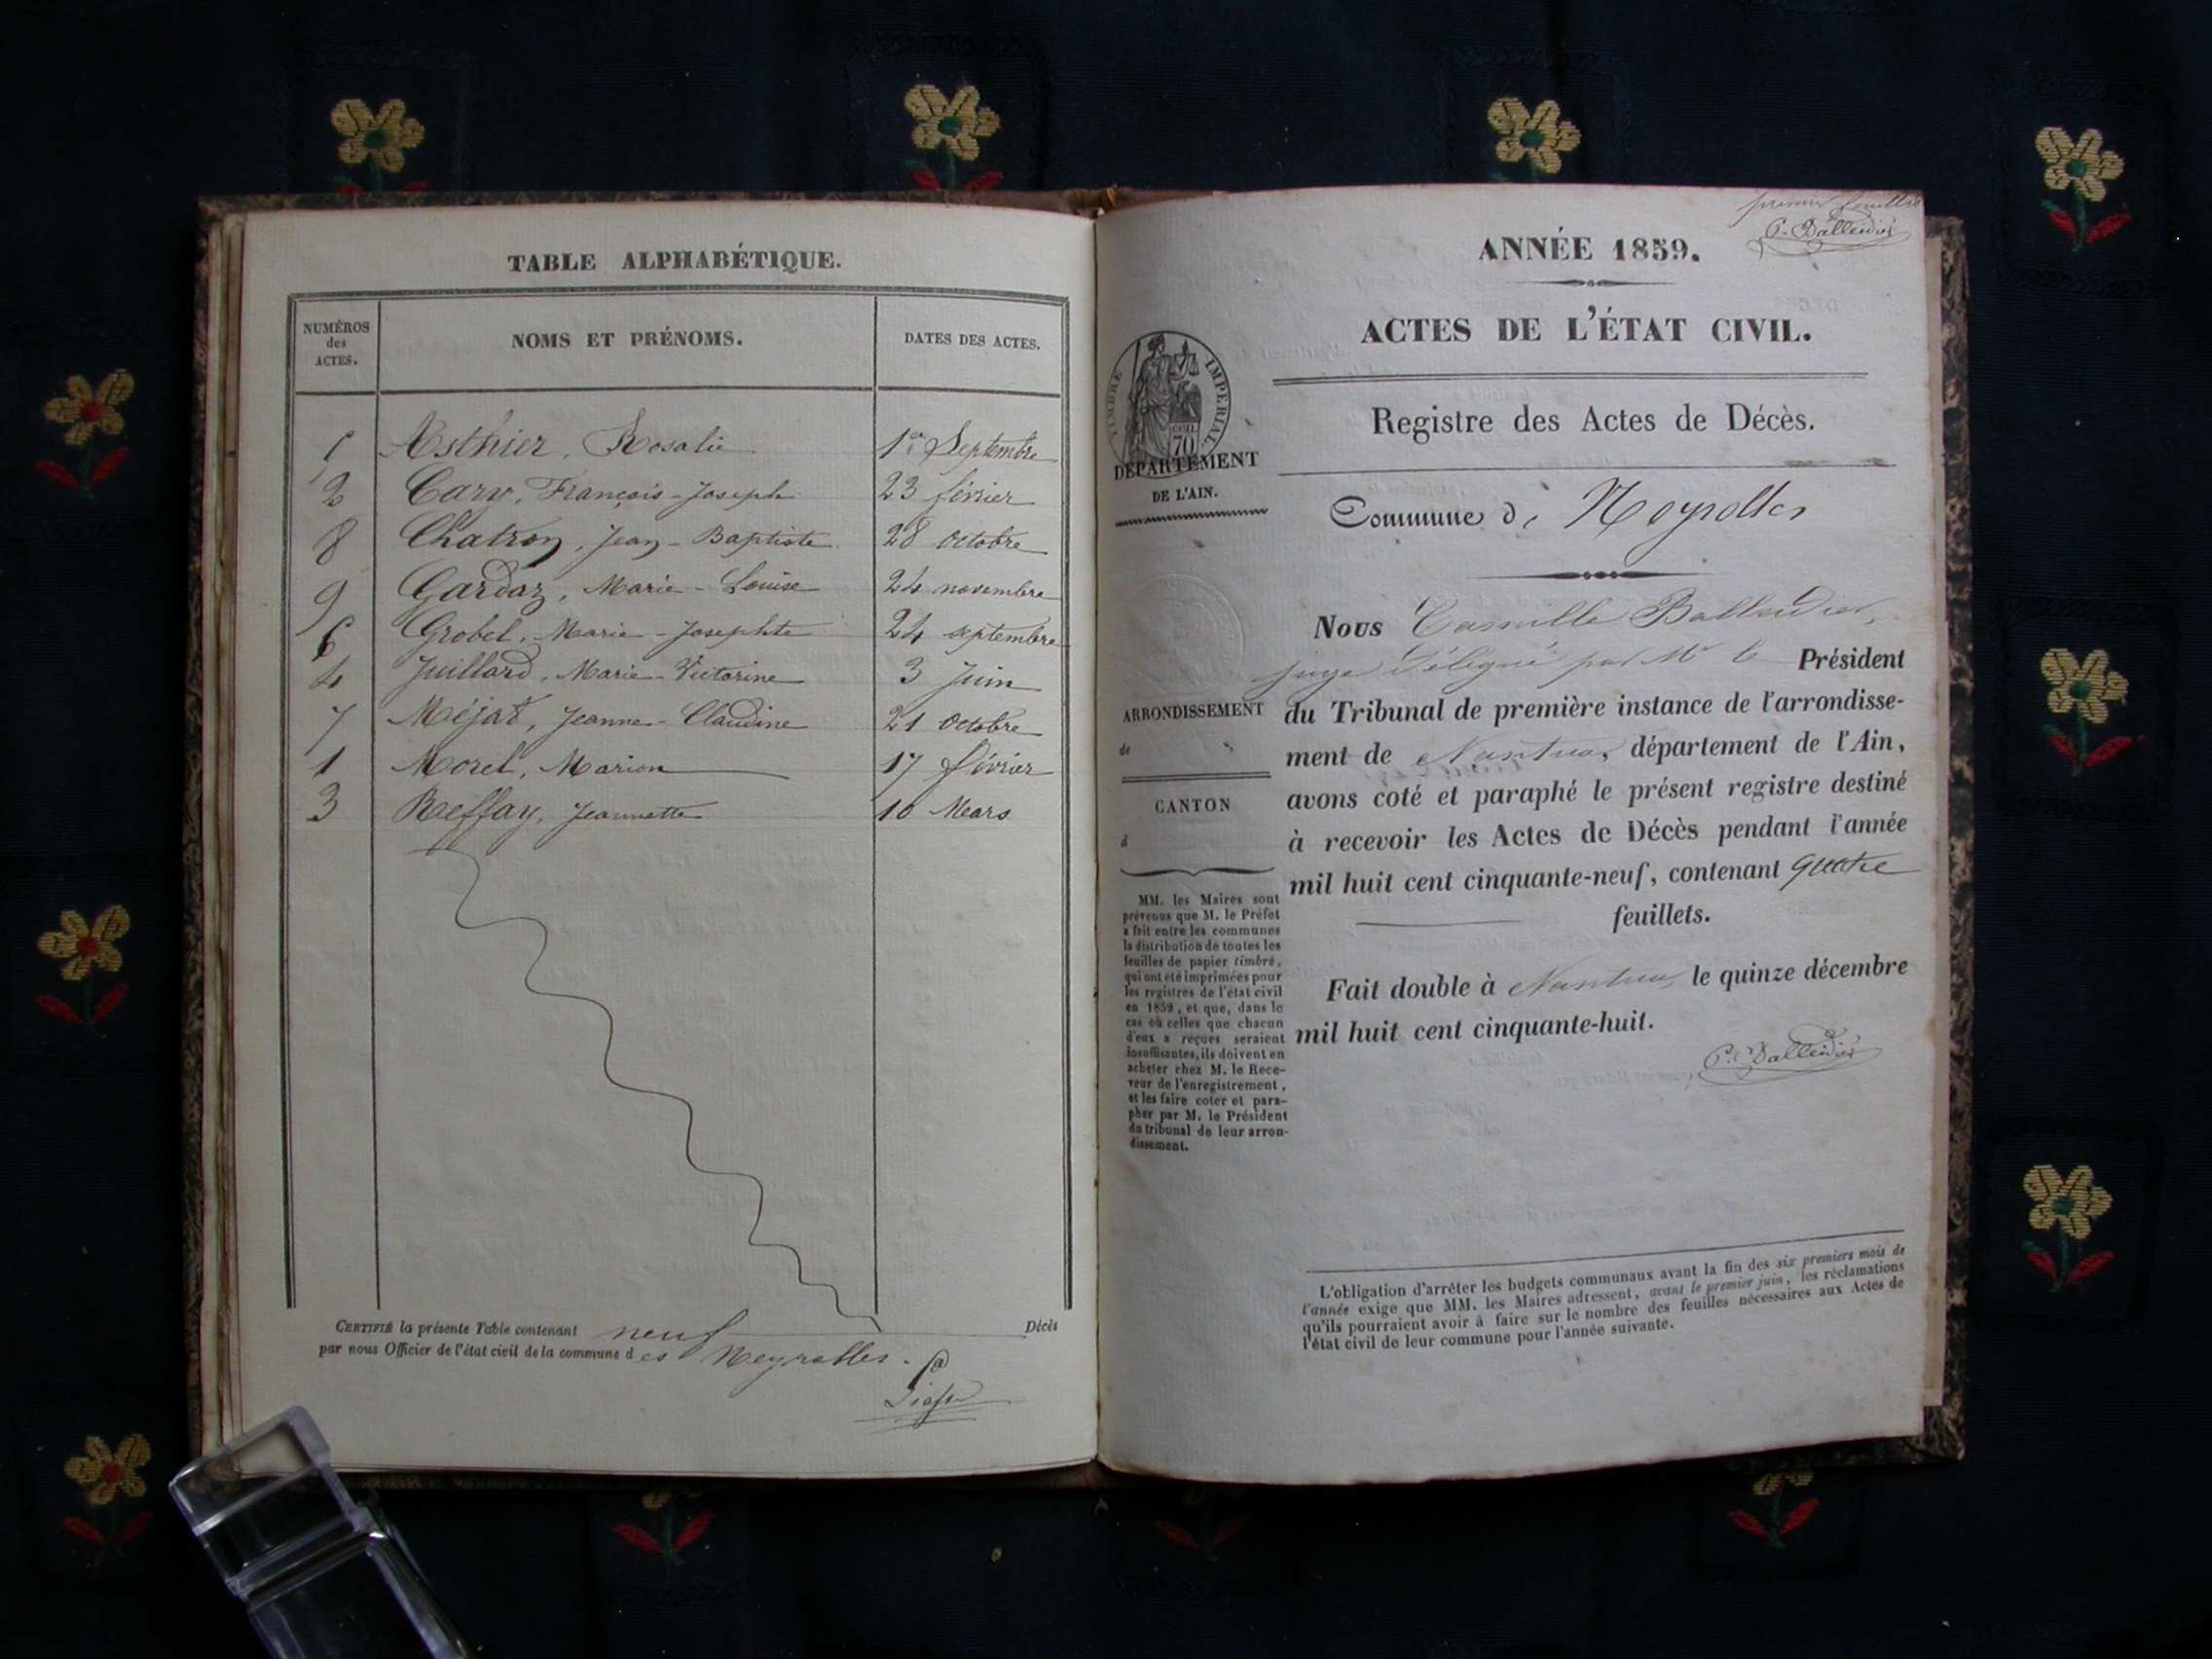 TABLE ALPHABÉTIQUE.
NUMÉROS
des
ACTES.
NOMS ET PRÉNOMS.
DATES DES ACTES.
Asthier, Rosalie 1er Septembre
2 Cary, François-Joseph 23 février
8 Chatron, Jean-Baptiste 28 octobre
9 Gardaz, Marie-Louise 24 novembre
6 Grobel, Marie-Josephte 24 septembre
4 Juillard, Marie-Victorine 3 Juin
7 Méjat, Jeanne-Claudine 21 Octobre
1 Morel, Marion 17 février
3 Reffay, Jeannette 10 Mars
CERTIFIÉ la présente Table contenant neuf Décès
par nous Officier de l'état civil de la commune des Neyrolles.
premier feuillet
C. Balleidier
ANNÉE 1859.
ACTES DE L'ÉTAT CIVIL.
TIMBRE IMPÉRIAL
70
DÉPARTEMENT
DE L'AIN.
Registre des Actes de Décès.
Commune de Neyrolles
Nous Camille Balleidier,
juge délégué par Mr le Président
du Tribunal de première instance de l'arrondisse-
ment de Nantua, département de l'Ain,
avons coté et paraphé le présent registre destiné
à recevoir les Actes de Décès pendant l'année
mil huit cent cinquante-neuf, contenant quatre
feuillets.
Fait double à Nantua le quinze décembre
mil huit cent cinquante-huit.
C. Balleidier
ARRONDISSEMENT
de
CANTON
d
MM. les Maires sont
prévenus que M. le Préfet
a fait entre les communes
la distribution de toutes les
feuilles de papier timbré,
qui ont été imprimées pour
les registres de l'état civil
en 1859, et que, dans le
cas où celles que chacun
d'eux a reçues seraient
insuffisantes, ils doivent en
acheter chez M. le Rece-
veur de l'enregistrement,
et les faire coter et para-
pher par M. le Président
du tribunal de leur arron-
dissement.
L'obligation d'arrêter les budgets communaux avant la fin des six premiers mois de
l'année exige que MM. les Maires adressent, avant le premier juin, les réclamations
qu'ils pourraient avoir à faire sur le nombre des feuilles nécessaires aux Actes de
l'état civil de leur commune pour l'année suivante.